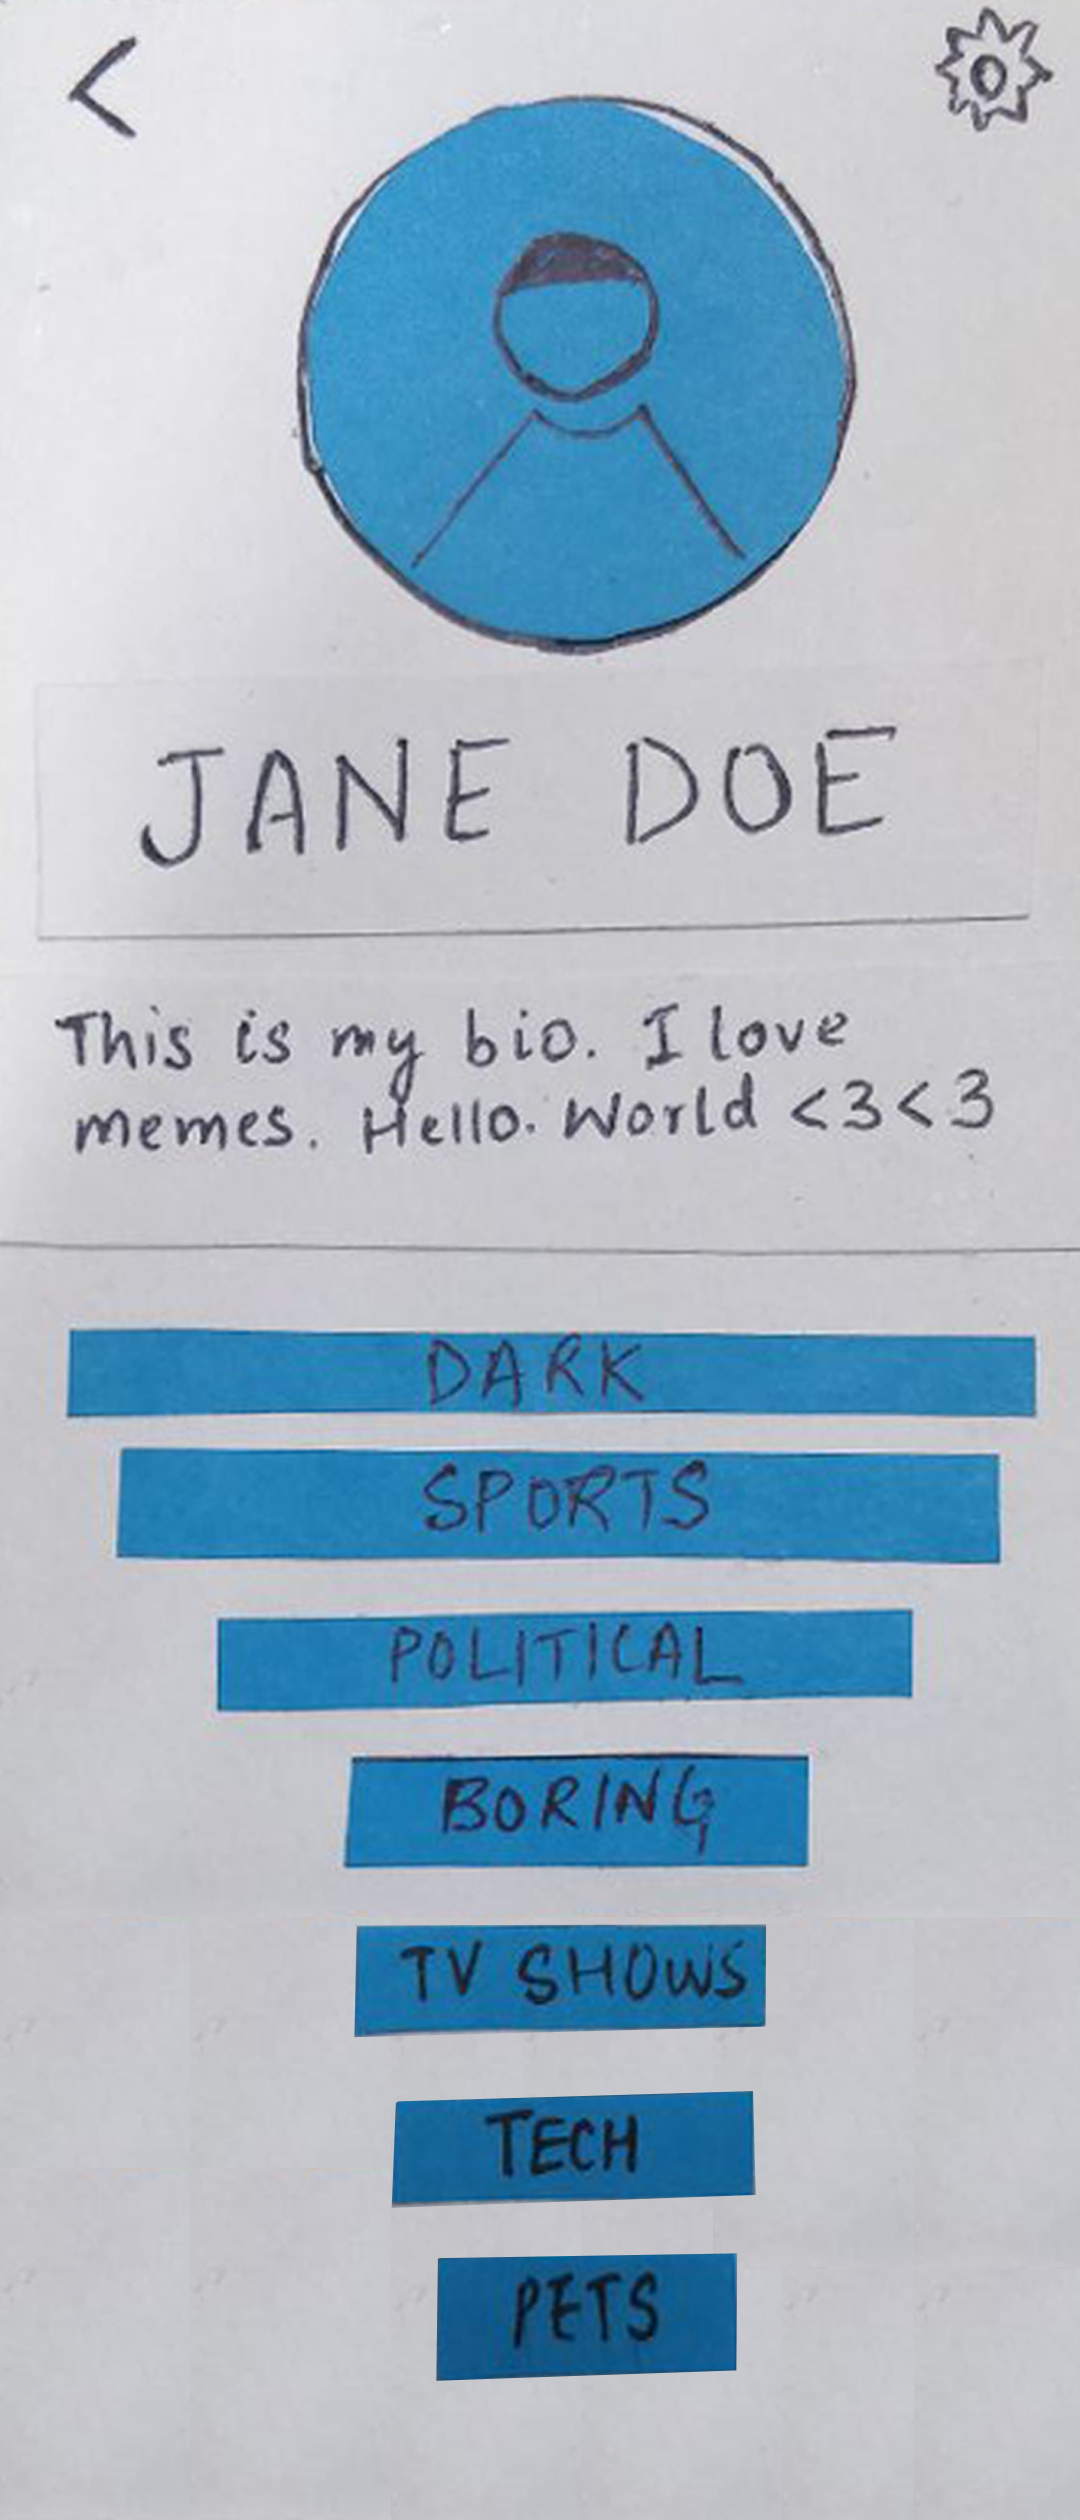 JANE DOE
This is my bio. I love
memes. Hello. World <3<3
DARK
SPORTS
POLITICAL
BORING
TV SHOWS
TECH
PETS